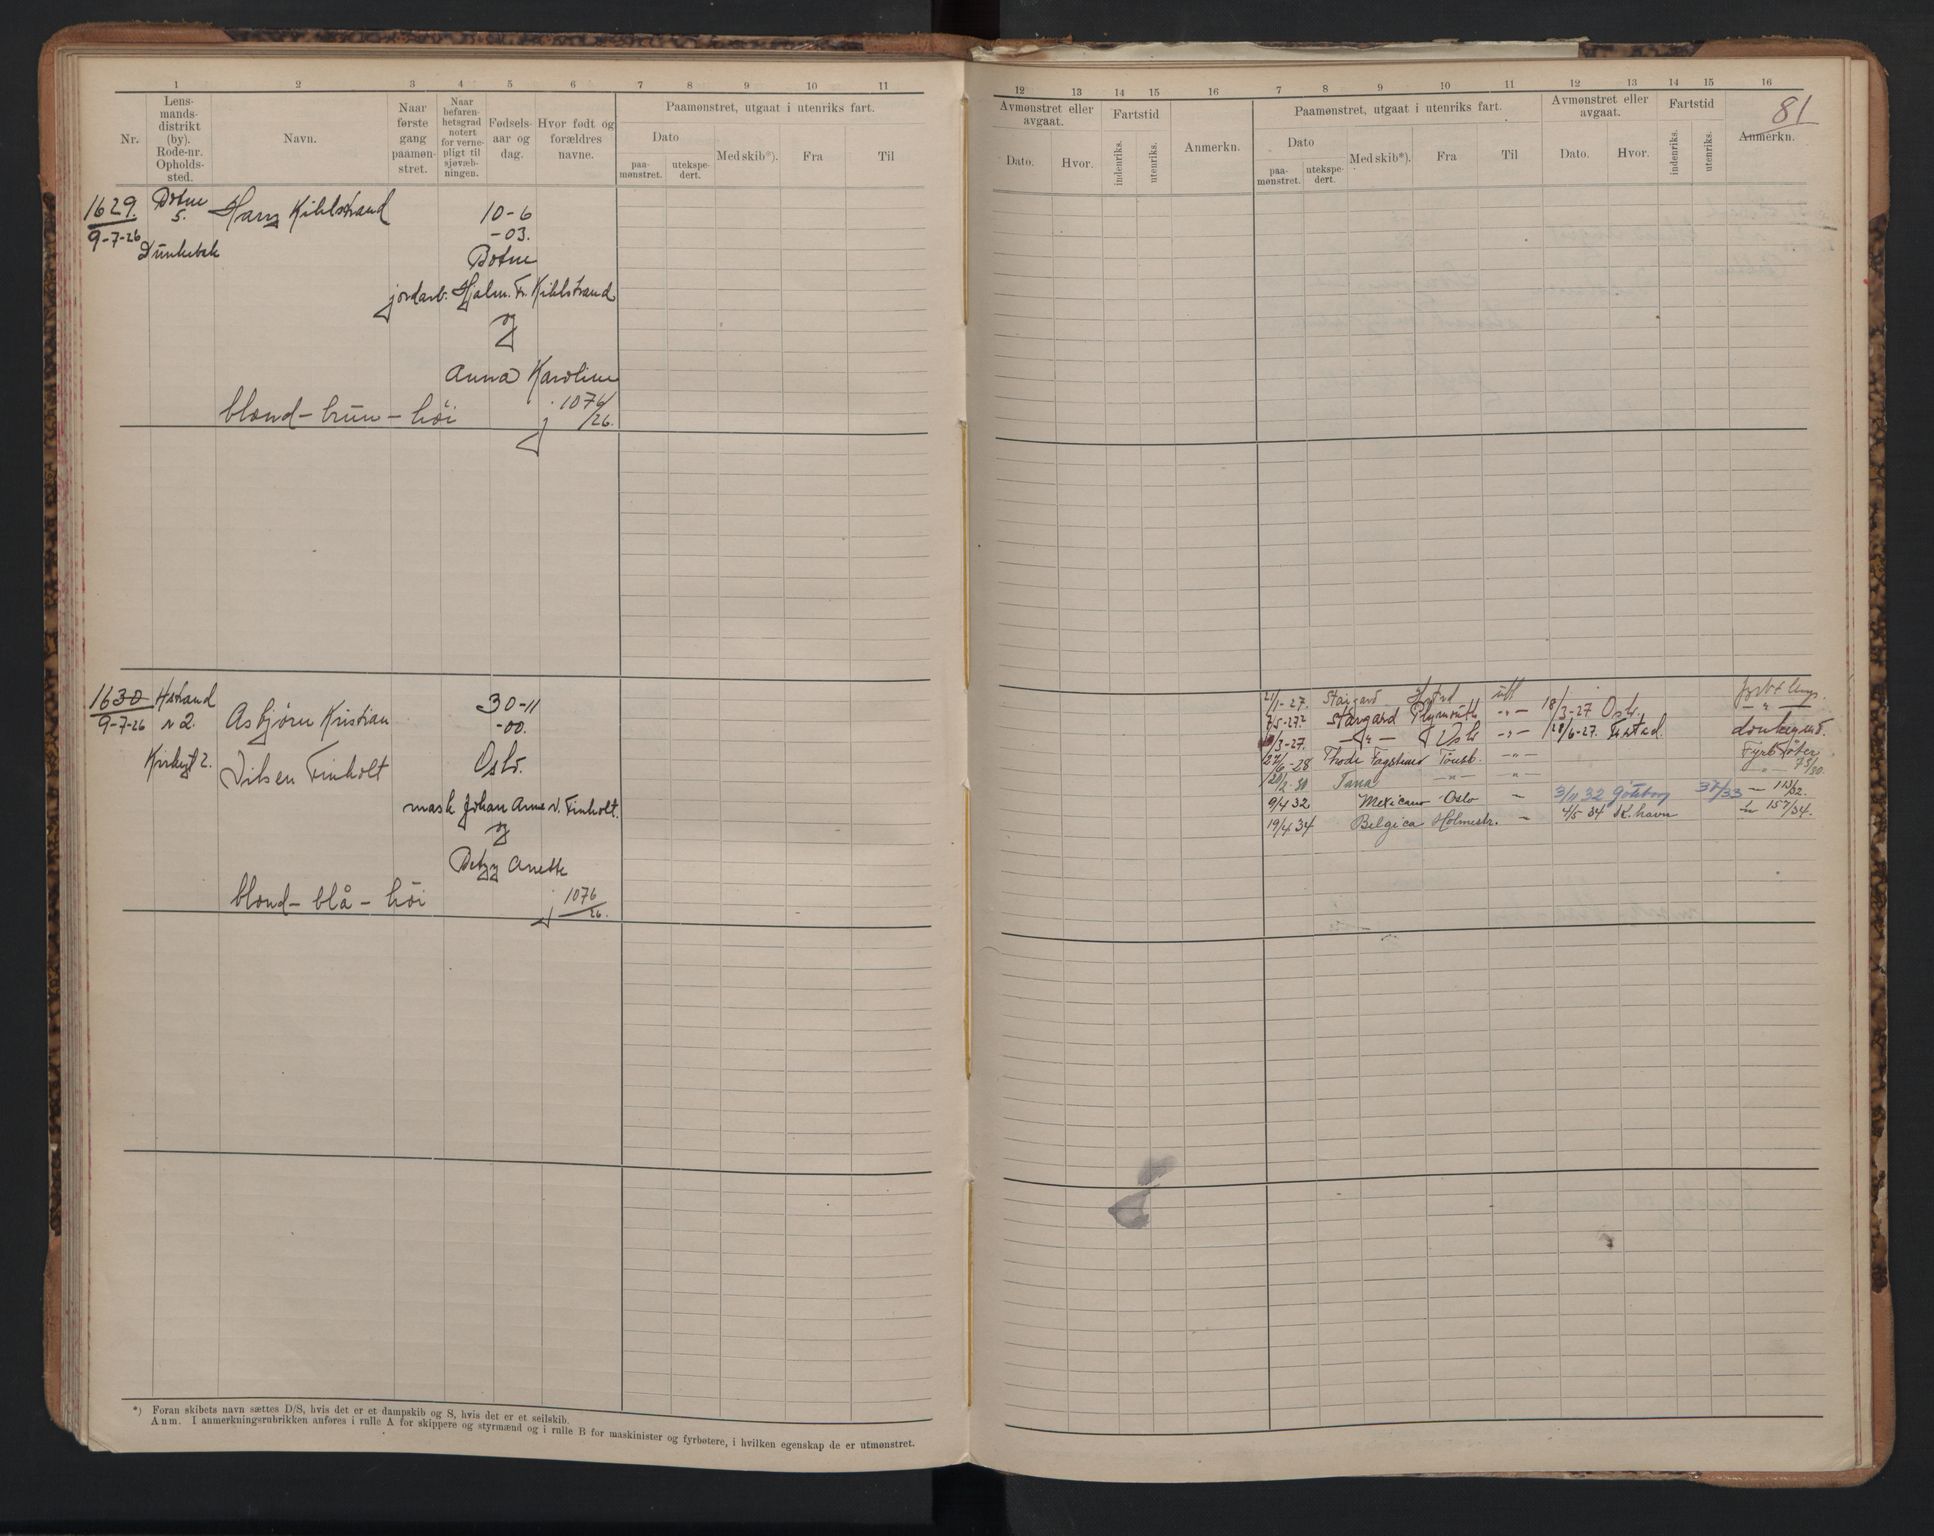 1 2 3 4 5 6 7 8 9 10 11
Nr.
Lens-
mands-
distrikt
(by).
Rode-nr.
Opholds-
sted.
Navn.
Naar
første
gang
paamøn-
stret.
Naar
befaren-
hetsgrad
notert
for verne-
pligt til
sjøvæb-
ningen.
Fødsels-
aar og
dag.
Hvor født og
forældres
navne.
Paamønstret, utgaat i utenriks fart.
Dato
paa-
mønstret.
utekspe-
dert.
Med skib*).
Fra
Til
1629.
9-7-26
Botne
5.
Dunkebek
Harry Kihlstrand
10-6
-03.
Botne
jordarb. Hjalm. Fr. Kihlstrand
og
Anna Karoline
blond - brun - høi
j. 1076/26.
1630
9-7-26
Hstrand
N 2.
Kirkegt 2.
Asbjørn Kristian
Nilsen Finholt
30-11
-00.
Oslo.
mask Johan Arne v. Finholt.
og
Betzy Anette
blond - blå - høi
j 1076/26.
*) Foran skibets navn sættes D/S, hvis det er et dampskib og S, hvis det er et seilskib.
Anm. I anmerkningsrubrikken anføres i rulle A for skippere og styrmænd og i rulle B for maskinister og fyrbøtere, i hvilken egenskap de er utmønstret.
12 13 14 15 16 7 8 9 10 11 12 13 14 15 16
81
Avmønstret eller
avgaat.
Dato.
Hvor.
Fartstid
indenriks.
utenriks.
Anmerkn.
Paamønstret, utgaat i utenriks fart.
Dato
paa-
mønstret.
utekspe-
dert.
Med skib*).
Fra
Til
Avmønstret eller
avgaat.
Dato.
Hvor.
Fartstid
indenriks.
utenriks.
Anmerkn.
21/1-27. Stargard Hstrd utl.
7/5-27 Stargard Plymouth -"- 18/3-27 Oslo -"-
/3-27. -"- Oslo -"- 18/6-27. donkeymd.
27/6-28 Thode Fagelund Tønsb. -"- Fyrbøter
20/2.30 Tana -"- -"- -"- 75/30.
9/4 32 Mexicano Oslo - 3/11 32 Göteborg 37/33 - 113/32.
19/4 34 Belgica Holmestr. - 4/5 34 K.havn 157/34.